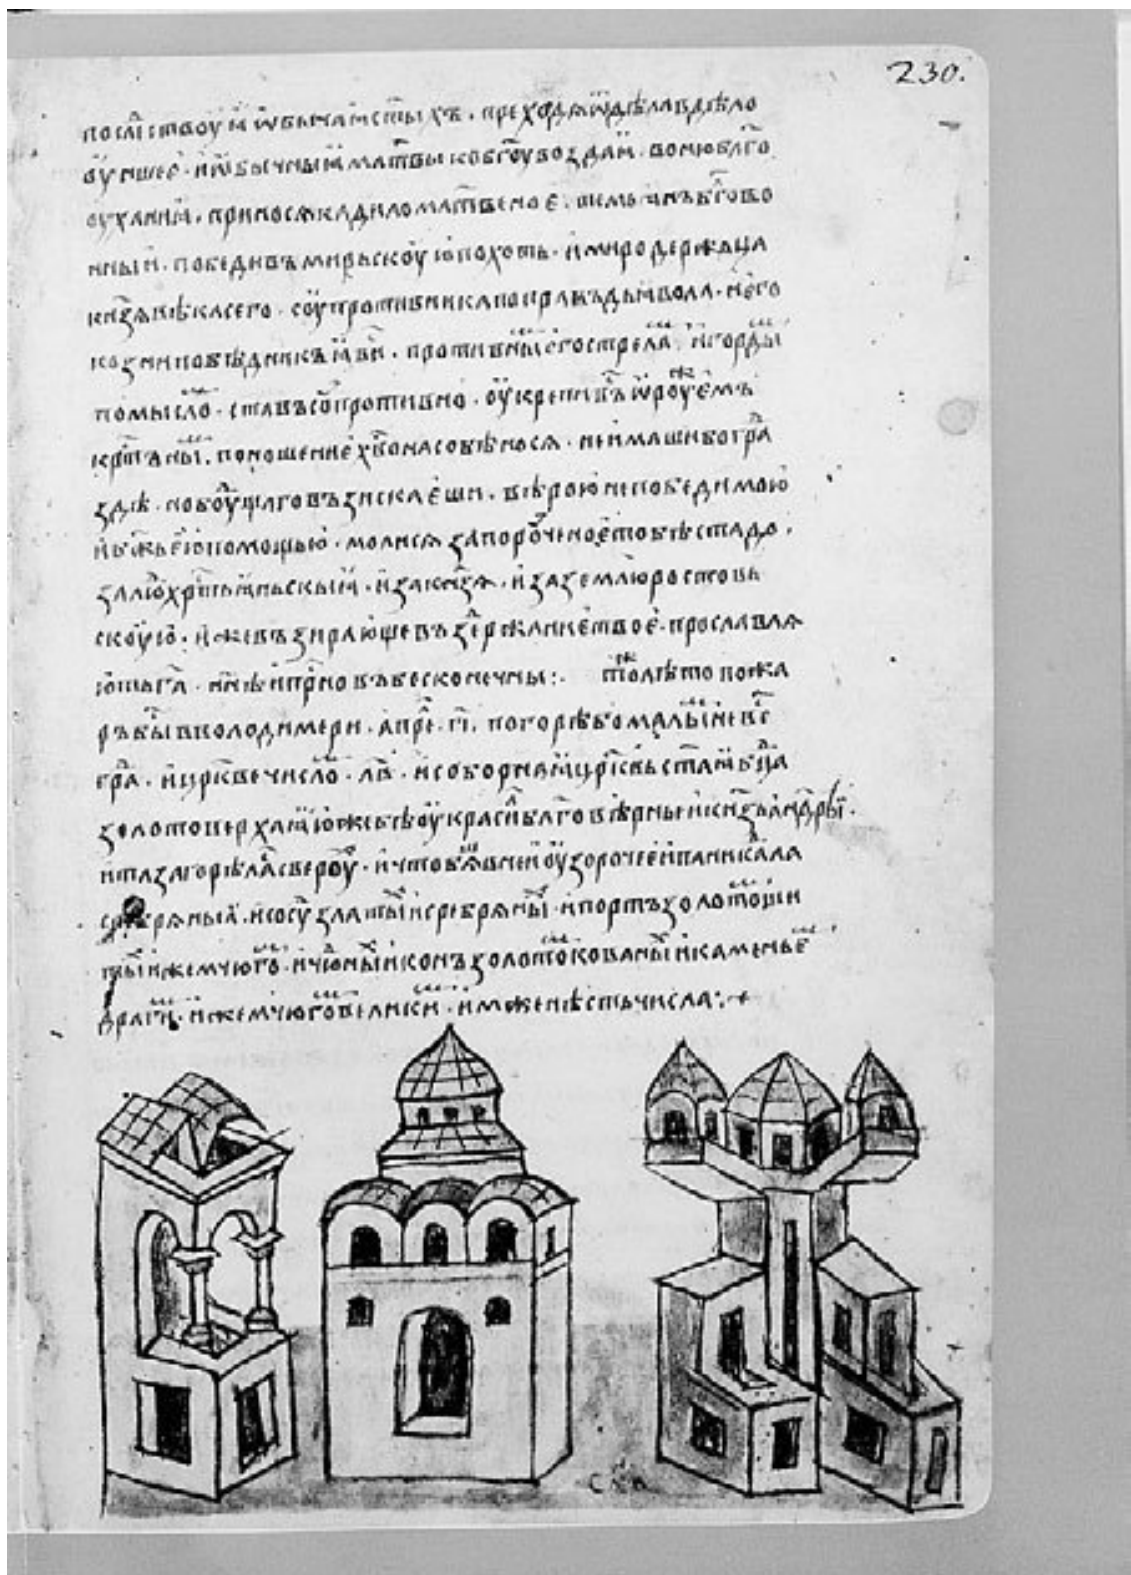 послѣствоуꙗ ѡбычаꙗ ст҃ыхъ . преходѧ ѿ дѣла в дѣло
оуншеє . и ѡбычныꙗ мл҃твы к бг҃оу воздаꙗ . воню блг҃о
оуханиꙗ . приносѧ кадило мл҃твеноє . симьꙗнъ бг҃ово
нныи . победивъ мирьскоую похоть . и миродержьца
кнѧзѧ вѣка сего . соупротивника поправъ дьꙗвола . и єго
козни побѣдникъ ꙗви . противныⷨ єго стрелаⷨ . и горды
помыслоⷨ . ставъ сопротивно . оукрепивⸯсѧ ѿроужⷤємъ
крⷭтьныⷨ . поношениє хв҃о на собѣ носѧ . не имаши бо граⷣ
здѣ . но боудоущаго възискаєши . вѣрою непобедимою
и бж҃ьєю помощью . молисѧ за порочⷱеноє тобѣ стадо .
за люⷣ хрⷭтьꙗньскыꙗ . и за кнѧзѧ . и за землю ростовь
скоую . иже възирающе въздержаниє твоє . прославлѧ
ютъ бг҃а . нн҃ѣ и прⷭно въ бесконечны :· тоⷢ лѣⷤто пожа
ръ быⷭ в володимери . апреⷧ . г҃і . погорѣ бо мало не веⷭ
граⷣ . и цр҃кве числоⷨ . л҃в . и сборнаꙗ цр҃квь ст҃аꙗ бц҃а
золотоверхаꙗ юже бѣ оукрасиⷧ блг҃овѣрныи кнѧзь андрѣи .
и та загорѣласѧ сверхоу . и что бѧше в неи оузорочеи и паникадила
сребрѧныꙗ . и сосоуⷣ златыⷯ и сребрѧныⷯ . и портъ золотоⷨ ши
тыⷯ и жемчюгоⷨ . и чюⷣныⷯ иконъ золотоⷨ кованыⷯ и каменьєⷨ
драгиⷨ . и жемчюгоⷨ великиⷨ . имже нѣсть числа :·
230.